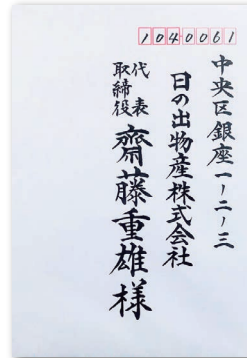 1040061
中央区銀座一ノ二ノ三
日の出物産株式会社
代表
取締役
齋藤重雄様